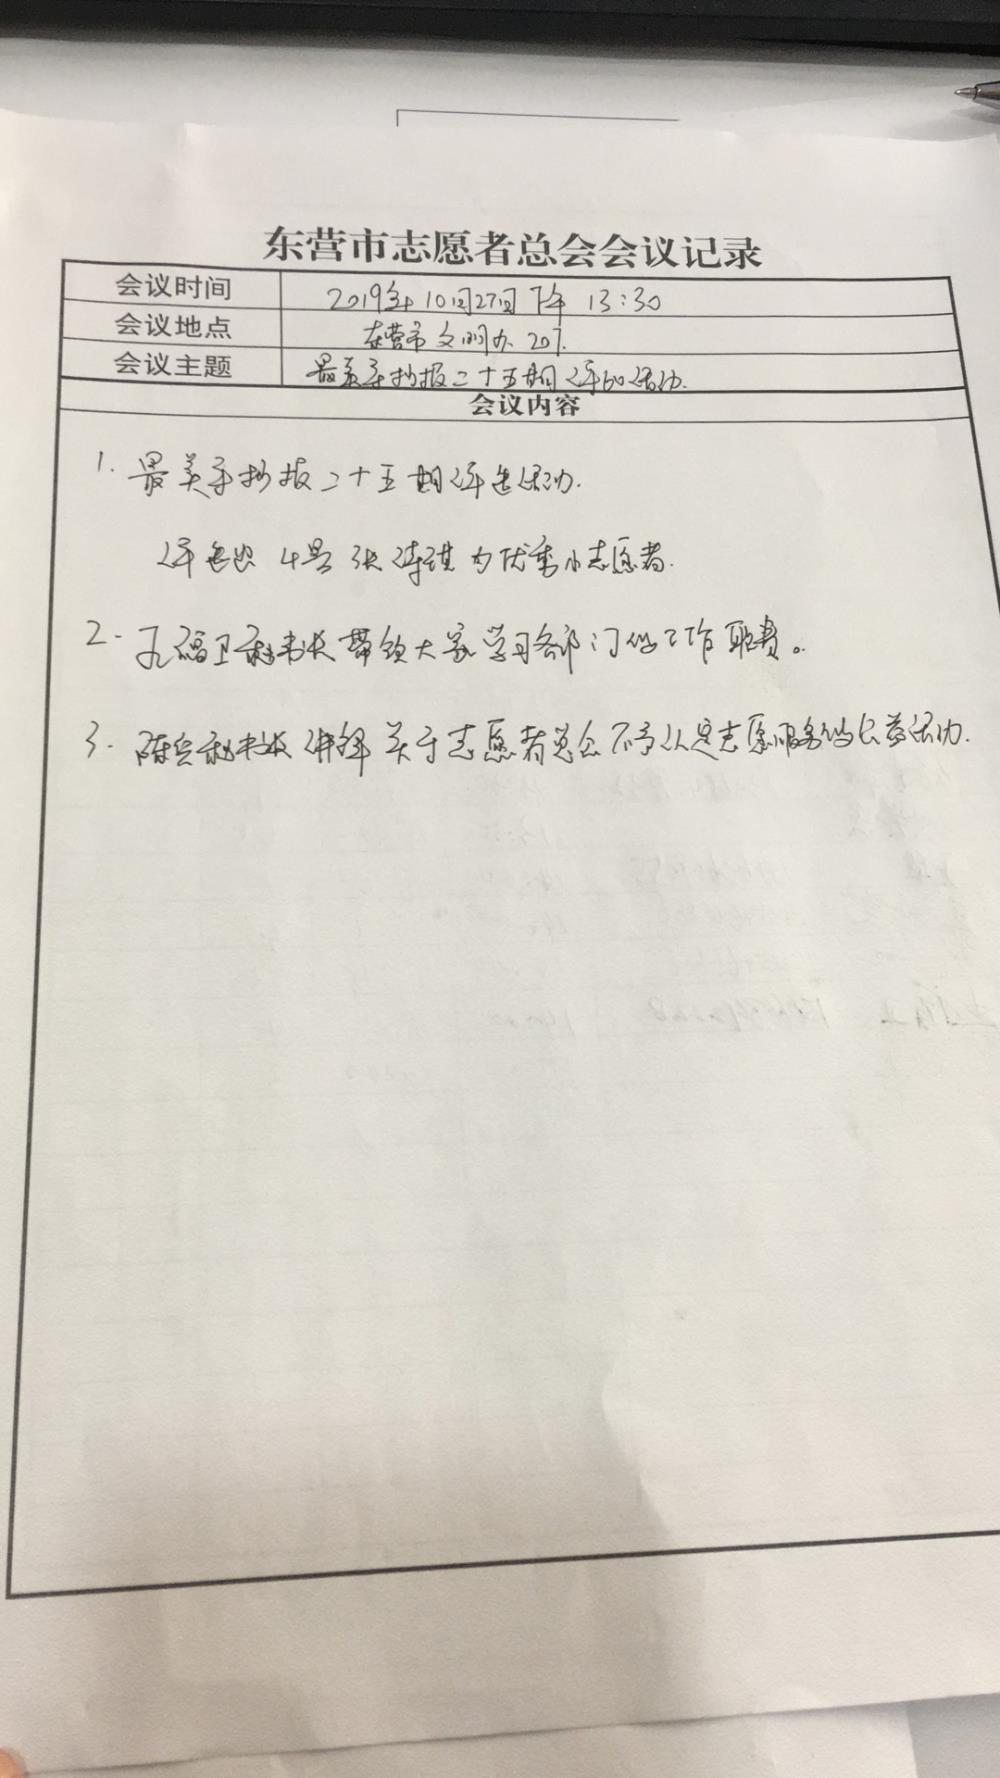 东营市志愿者总会会议记录
会议时间 2019年10月27日下午 13:30
会议地点 东营市文明办 207.
会议主题 最美手抄报二十五期评的活动.
会议内容
1. 最美手抄报二十五期评选活动.
评选出 4号 张 琪为优秀小志愿者.
2. 孔福卫秘书长带领大家学习各部门的工作职责。
3. 陈兵秘书长讲解关于志愿者总会不予认定志愿服务的公益活动.